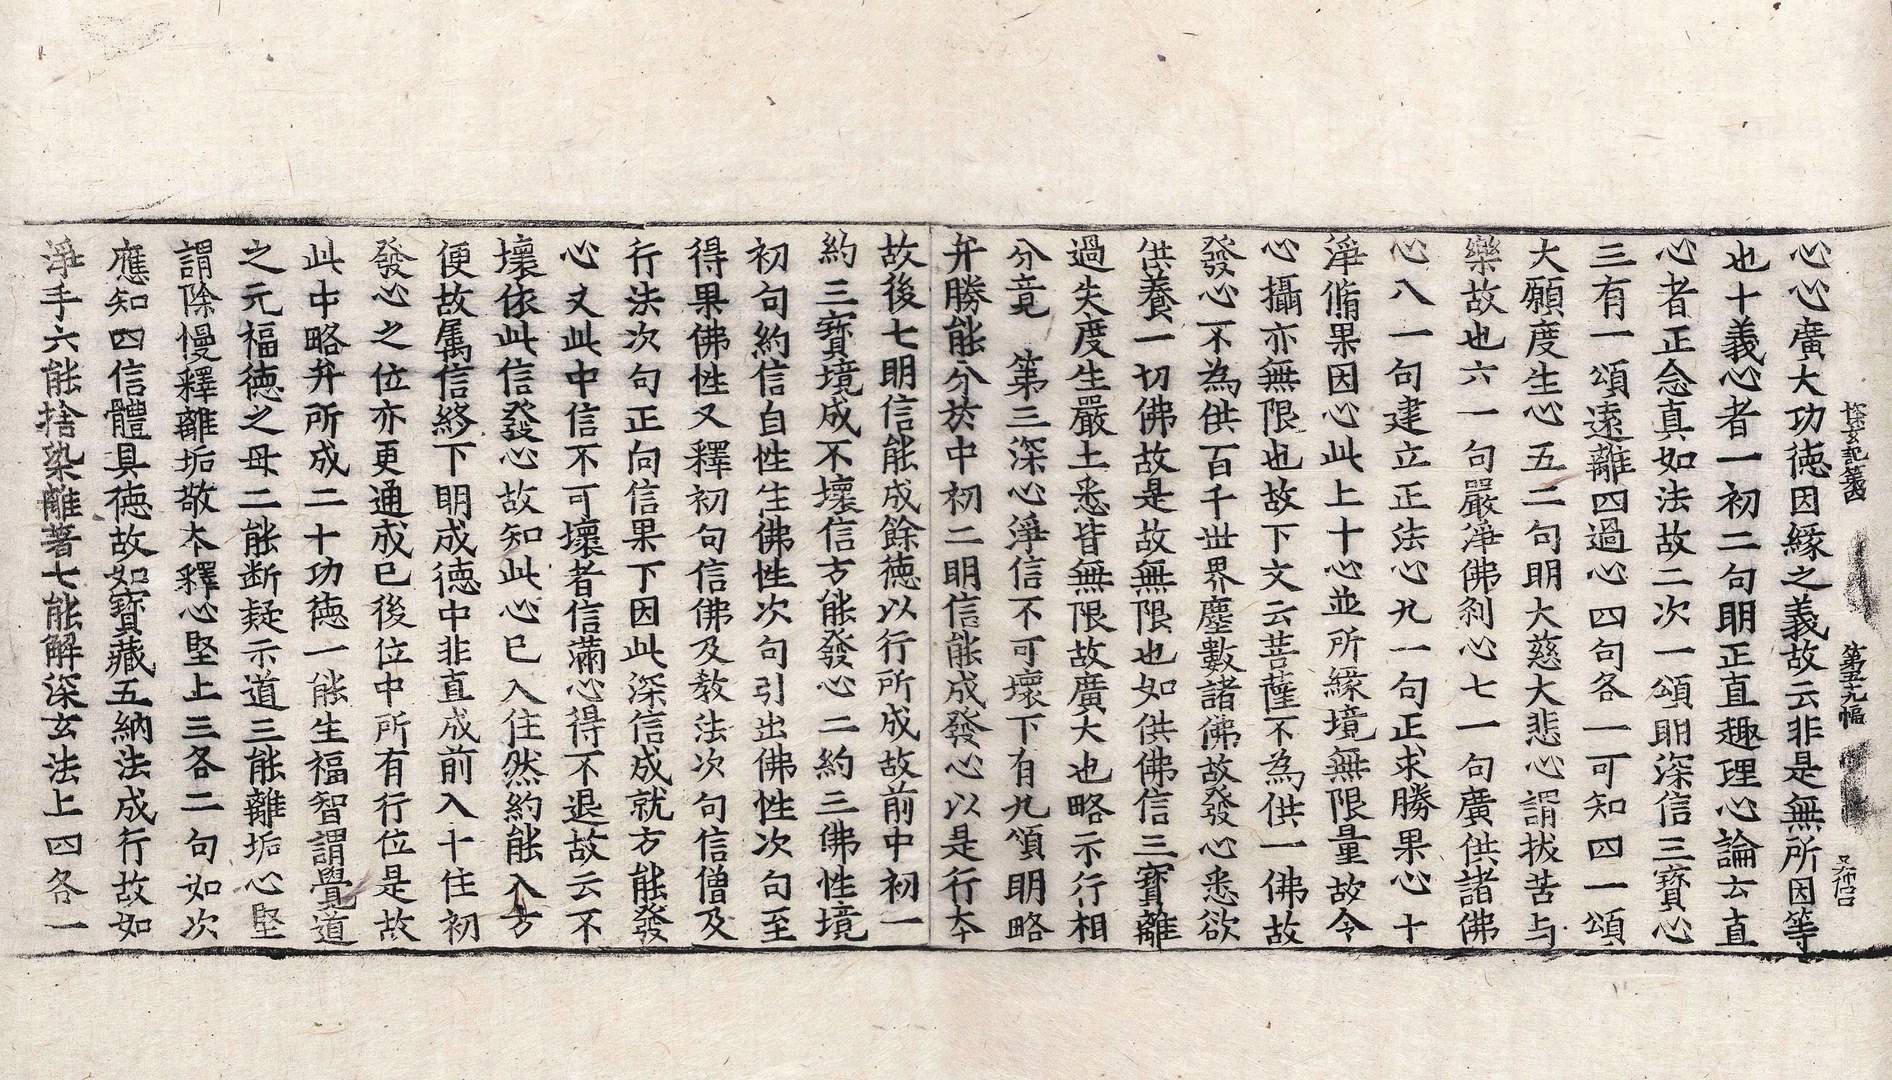 探玄記第四　第五九幅
心心廣大功徳因緣之義故云非是無所因等
也十義心者一初二句明正直趣理心論云直
心者正念真如法故二次一頌明深信三寶心
三有一頌遠離四過心四句各一可知四一頌
大願度生心五二句明大慈大悲心謂拔苦与
樂故也六一句嚴淨佛剎心七一句廣供諸佛
心八一句建立正法心九一句正求勝果心十
淨脩果因心此上十心並所緣境無限量故令
心攝亦無限也故下文云菩薩不為供一佛故
發心不為供百千世界塵數諸佛故發心悉欲
供養一切佛故是故無限也如供佛信三寶離
過失度生嚴土悉皆無限故廣大也略示行相
分竟　第三深心淨信不可壞下有九頌明略
弁勝能分於中初二明信能成發心以是行本
故後七明信能成餘徳以行所成故前中初一
約三寶境成不壞信方能發心二約三佛性境
初句約信自性住佛性次句引出佛性次句至
得果佛性又釋初句信佛及教法次句信僧及
行法次句正向信果下因此深信成就方能發
心又此中信不可壞者信滿心得不退故云不
壞依此信發心故知此心已入住然約能入方
便故属信終下明成徳中非直成前入十住初
發心之位亦更通成已後位中所有行位是故
此中略弁所成二十功徳一能生福智謂覺道
之元福徳之母二能断疑示道三能離垢心堅
謂除慢釋離垢敬本釋心堅上三各二句如次
應知四信體具徳故如寶藏五納法成行故如
淨手六能捨染離著七能解深玄法上四各一